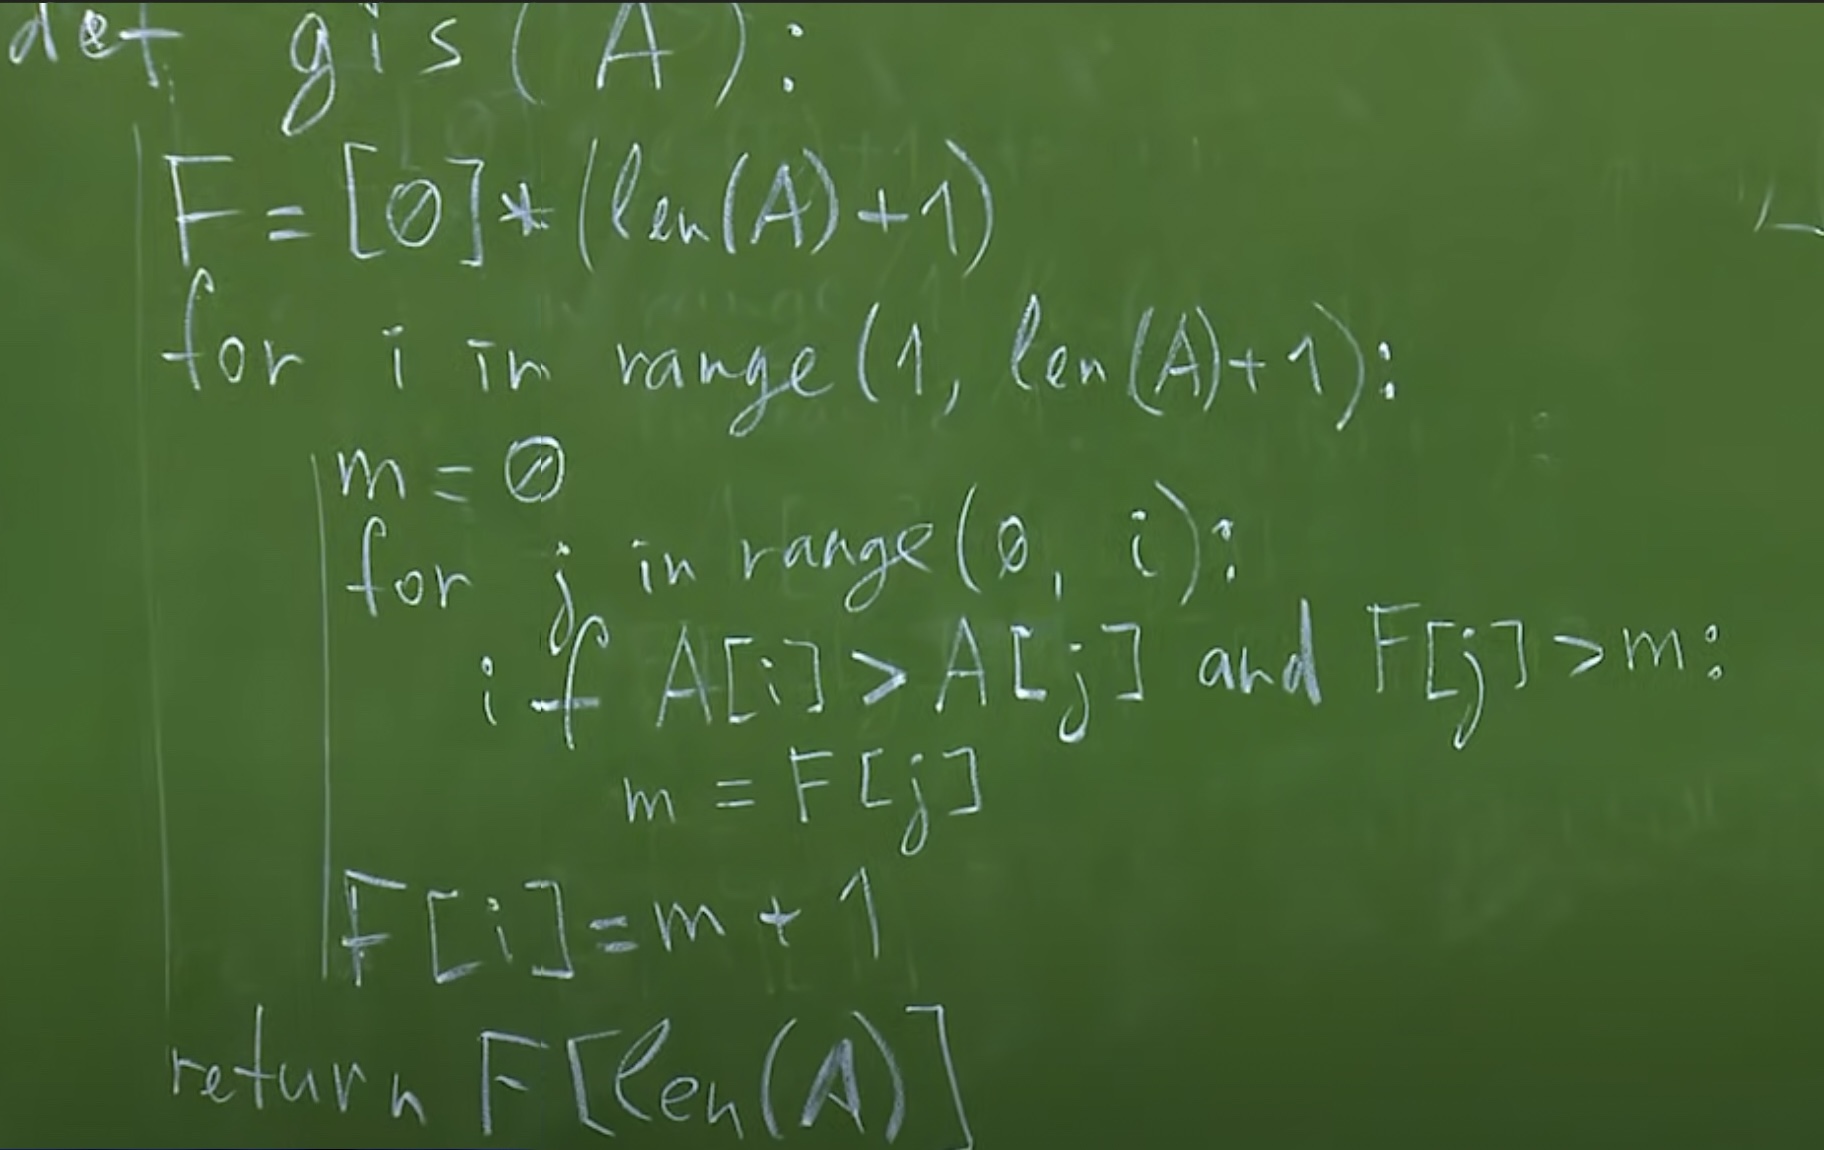 def gis(A):
F = [0]*(len(A)+1)
for i in range(1, len(A)+1):
m = 0
for j in range(0, i):
if A[i] > A[j] and F[j] > m:
m = F[j]
F[i] = m + 1
return F[len(A)]